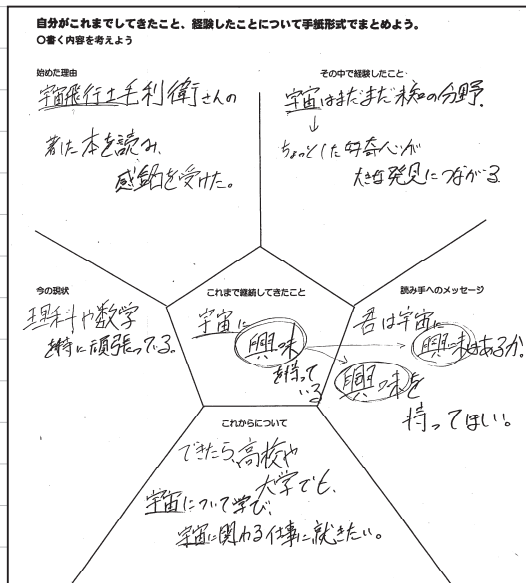 自分がこれまでしてきたこと、経験したことについて手紙形式でまとめよう。
〇書く内容を考えよう
始めた理由
宇宙飛行士毛利衛さんの
著した本を読み、
感銘を受けた。
その中で経験したこと
宇宙はまだまだ未知の分野。
↓
ちょっとした好奇心が
大きな発見につながる
今の現状
理科や数学
を特に頑張っている。
これまで継続してきたこと
宇宙に
興味
を持って
いる
読み手へのメッセージ
君は宇宙に
興味はあるか。
興味を
持ってほしい。
これからについて
できたら、高校や
大学でも、
宇宙について学び、
宇宙に関わる仕事に就きたい。